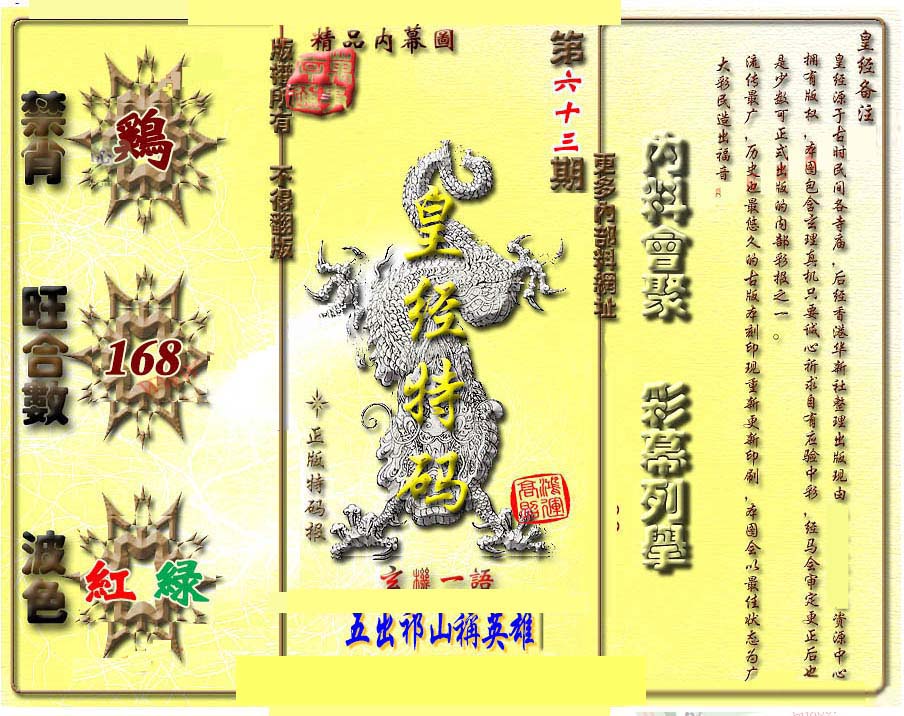 精品内幕圖
版權所有 不得翻版
第六十三期
更多內部料網址
皇经特码
正版特码报
鴻運高照
玄機一語
五出祁山稱英雄
禁肖
鷄
旺合數
168
波色
紅 緑
內料會聚
彩幕列舉
皇经备注
皇经源于古时民间各寺庙,后经香港华新社整理出版现由
资源中心
拥有版权,本图包含玄理真机只要诚心祈求自有应验中彩,经马会审定更正后也
是少数可正式出版的内部彩报之一。
流传最广,历史也最悠久的古版本刻印现重新更新印刷,本图会以最佳状态为广
大彩民造出福音